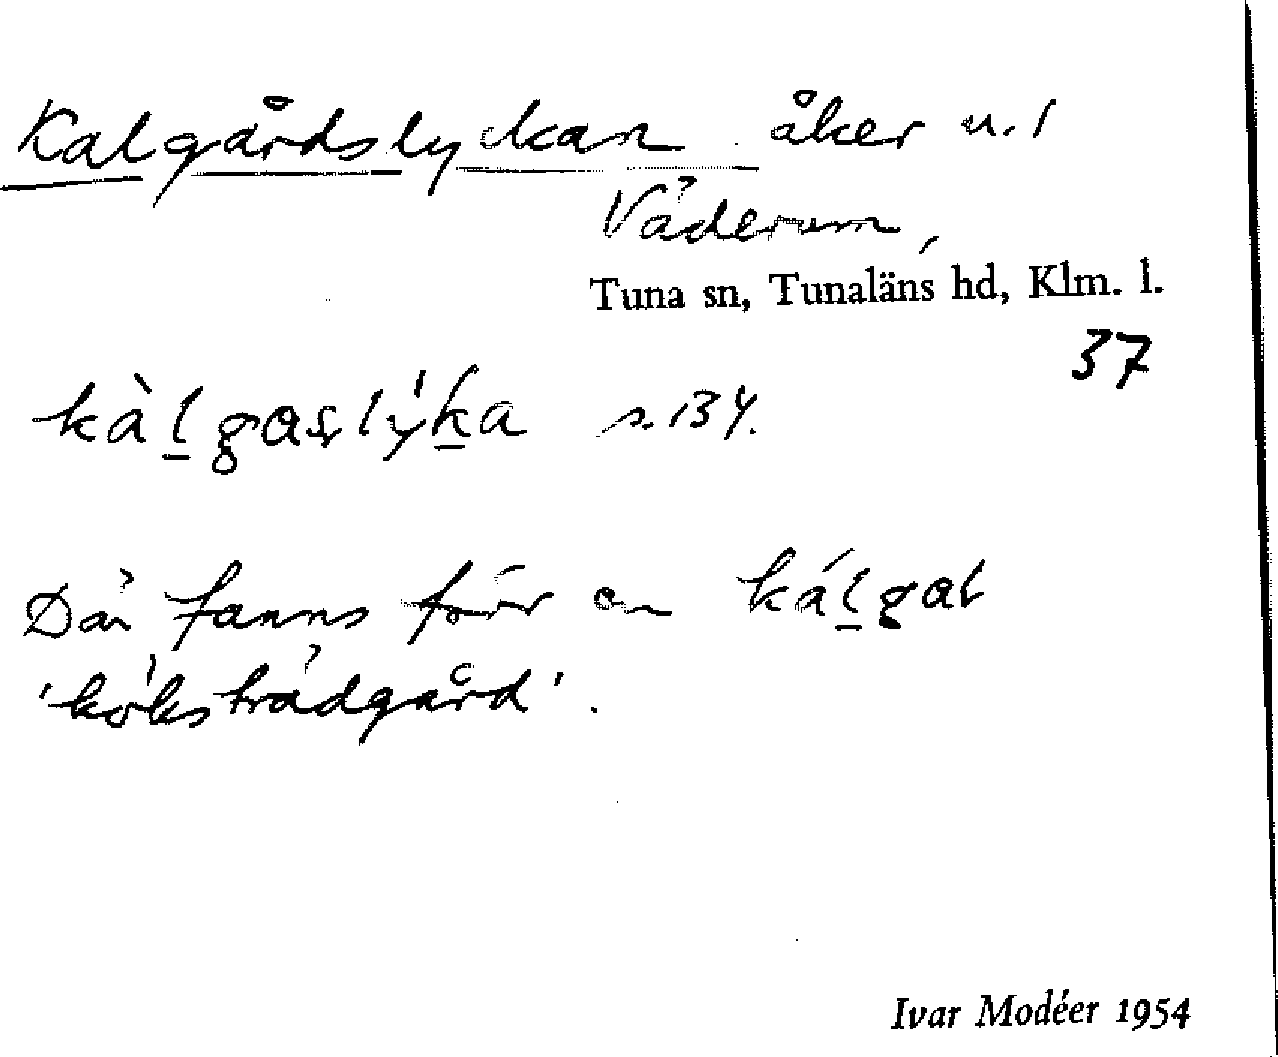 Kalgårdslyckan åker u. 1
Väderum,
Tuna sn, Tunaläns hd, Klm. l.
37
kàl̠gaslýk̠a s. 134.
Där fanns förr en kál̠gal
'köksträdgård'.
Ivar Modéer 1954